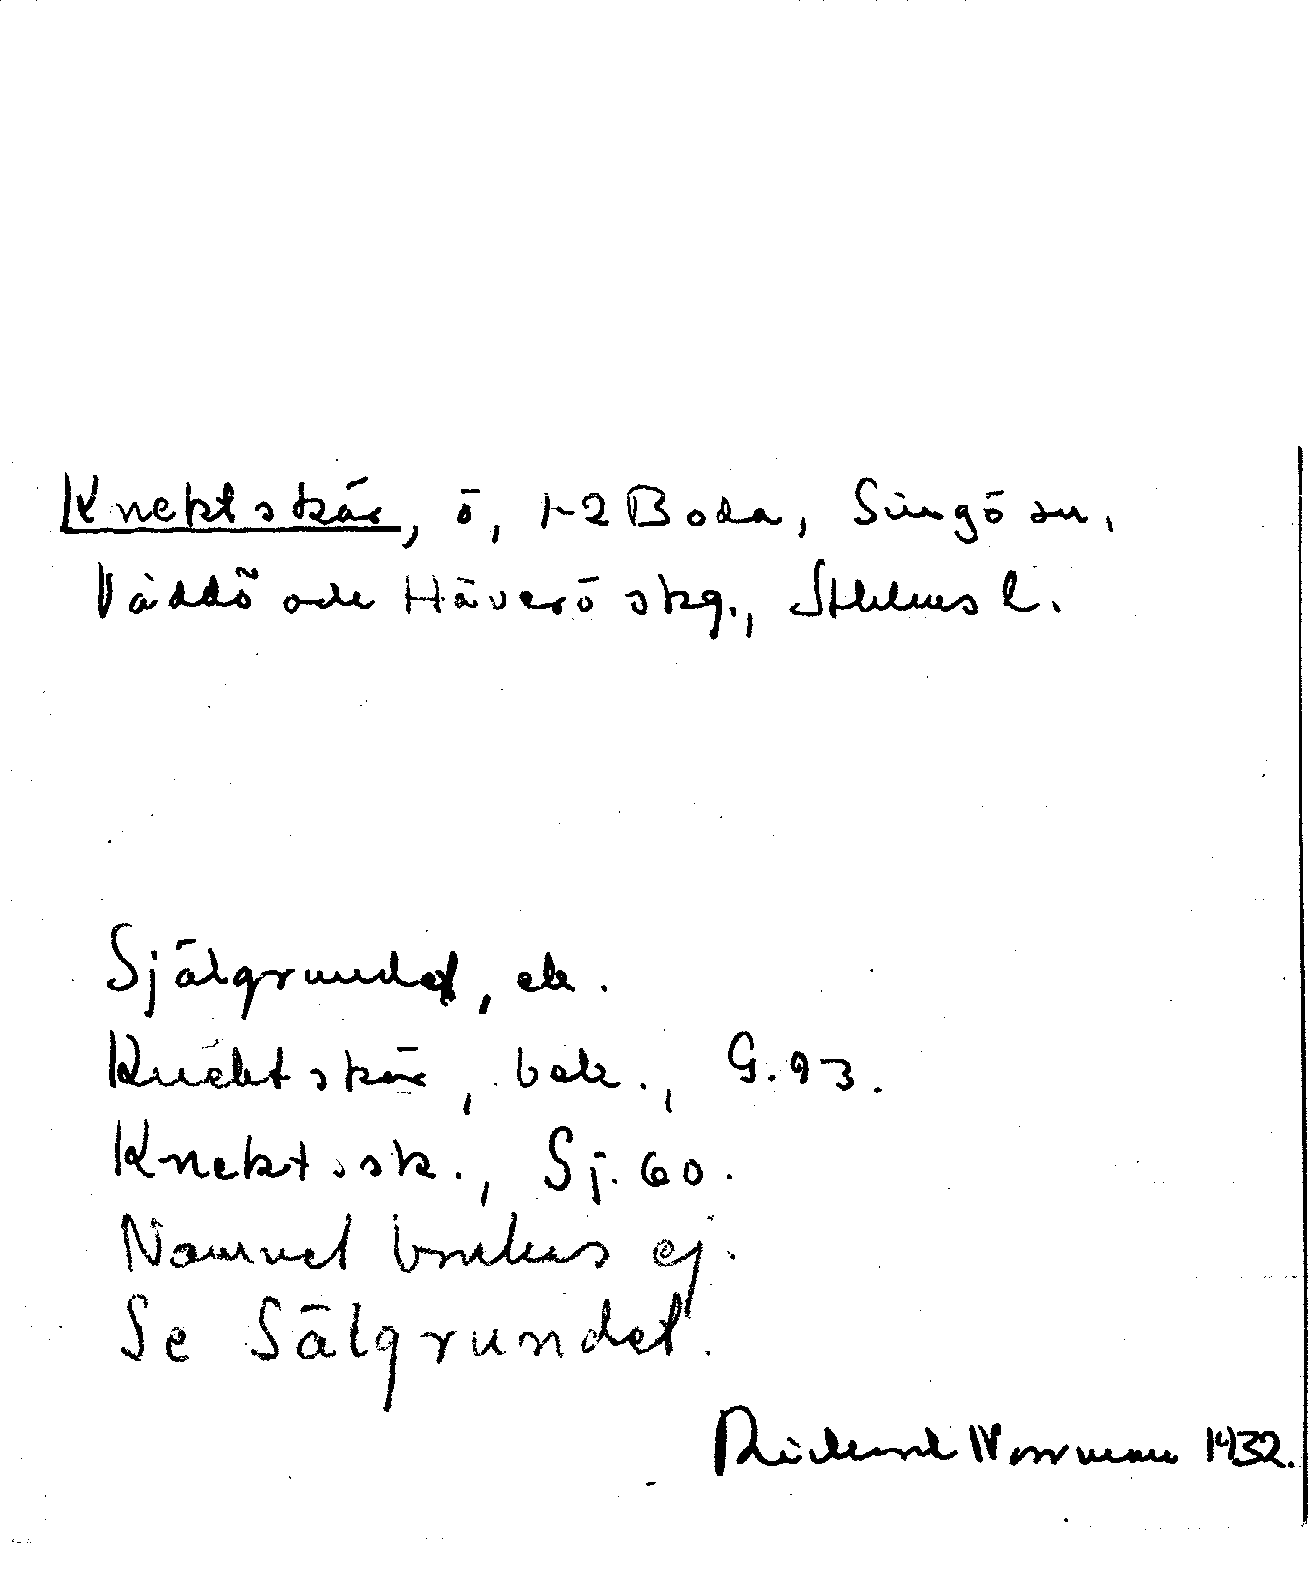 Knektskär, ö, 1-2 Boda, Singö sn,
Väddö och Häverö skg., Sthlms l.
Själgrundet, ek.
Knektskär, bek., G.93.
Knekt.sk., Sj.60.
Namnet brukas ej.
Se Sälgrundet.
Rickard Norrman 1932.